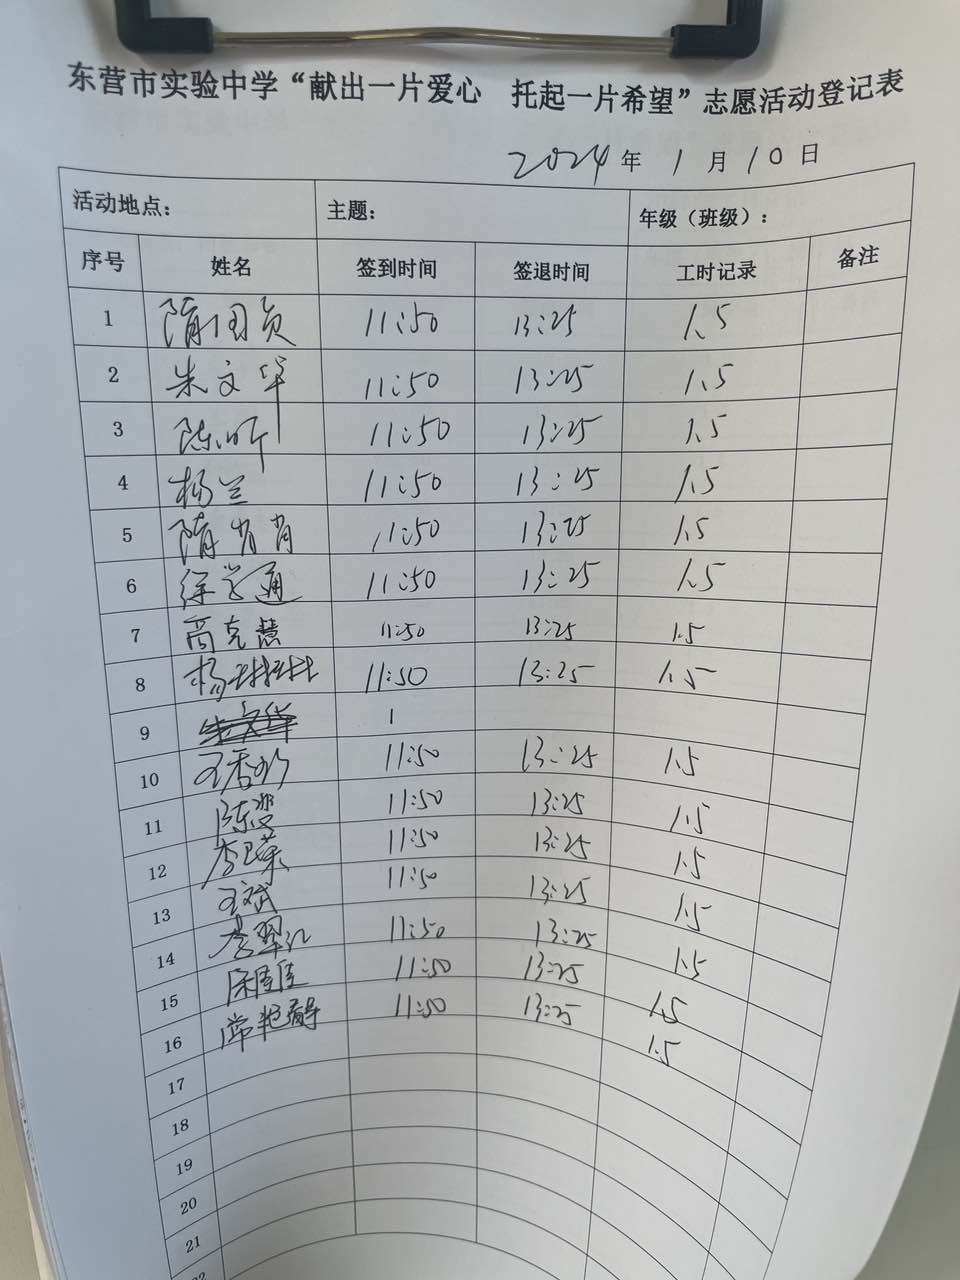 东营市实验中学“献出一片爱心 托起一片希望”志愿活动登记表
2024年1月10日
活动地点: 主题: 年级（班级）:
序号 姓名 签到时间 签退时间 工时记录 备注
1 11:50 13:25 1.5
2 朱文华 11:50 13:25 1.5
3 陈昕 11:50 13:25 1.5
4 杨兰 11:50 13:25 1.5
5 隋肖肖 11:50 13:25 1.5
6 徐学通 11:50 13:25 1.5
7 高克慧 11:50 13:25 1.5
8 杨琳琳 11:50 13:25 1.5
9 1
10 11:50 13:25 1.5
11 11:50 13:25 1.5
12 11:50 13:25 1.5
13 王斌 11:50 13:25 1.5
14 李翠红 11:50 13:25 1.5
15 11:50 13:25 1.5
16 常艳静 11:50 13:25 1.5
17
18
19
20
21